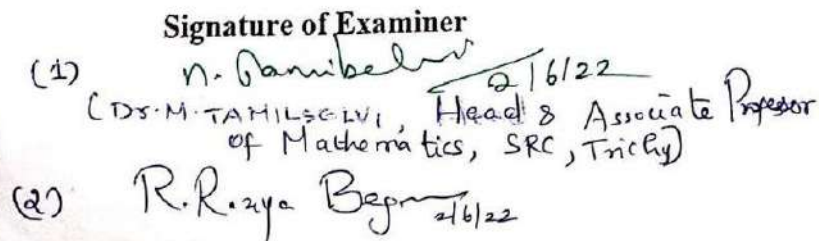 Signature of Examiner
(1) 2/6/22
(Dr. M. TAMILSELVI, Head & Associate Professor
of Mathematics, SRC, Trichy)
(2) R. Begum 2/6/22